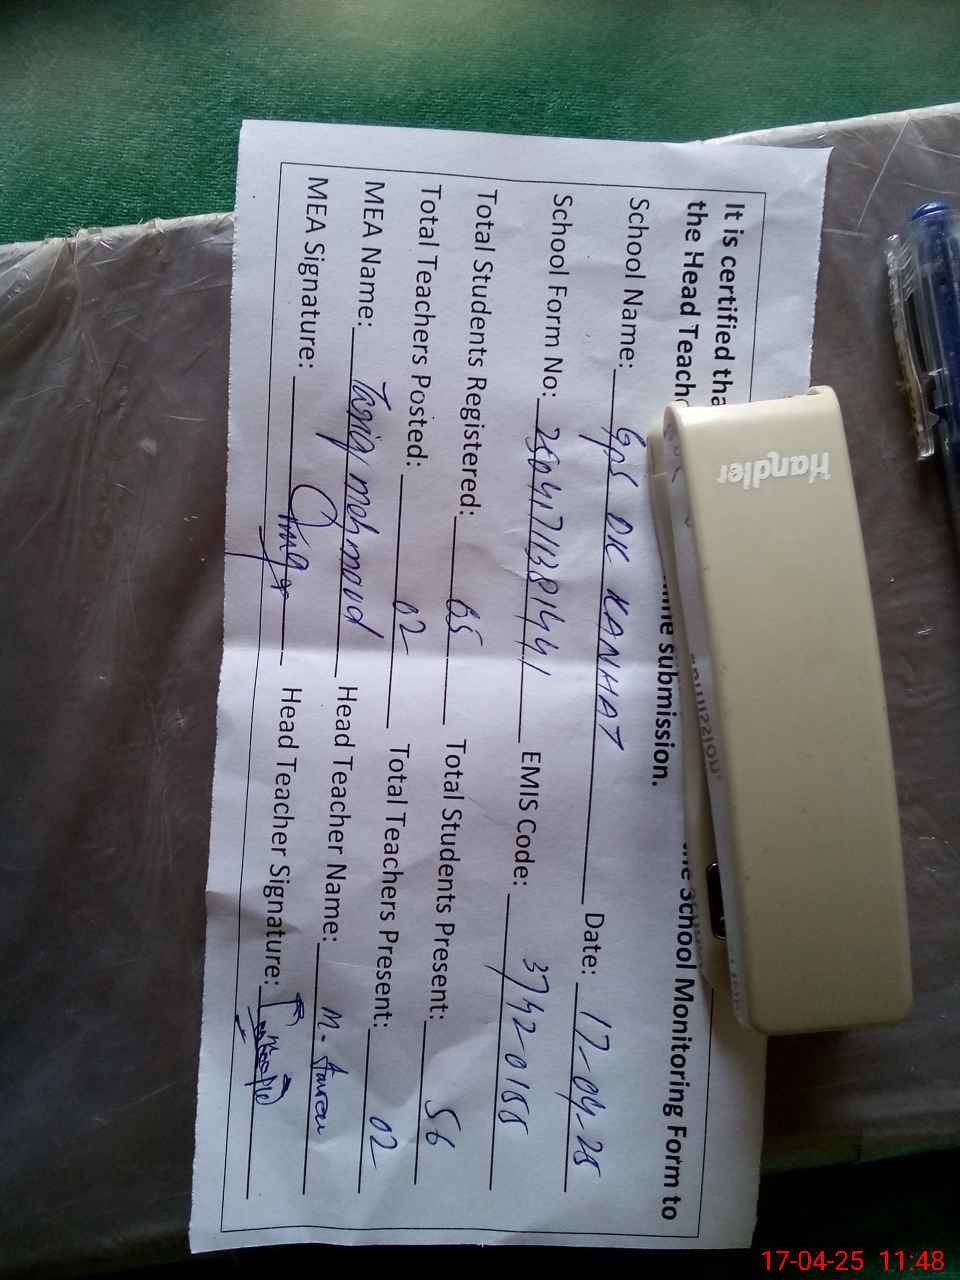 It is certified tha
the School Monitoring Form to
the Head Teach
submission.
School Name: GpS DK KANHAT Date: 17-04-25
School Form No: EMIS Code: 37420155
Total Students Registered: 65 Total Students Present: 56
Total Teachers Posted: 02 Total Teachers Present: 02
MEA Name: Tariq mehmood Head Teacher Name: M.
MEA Signature: Head Teacher Signature:
Handler
17-04-25 11:48